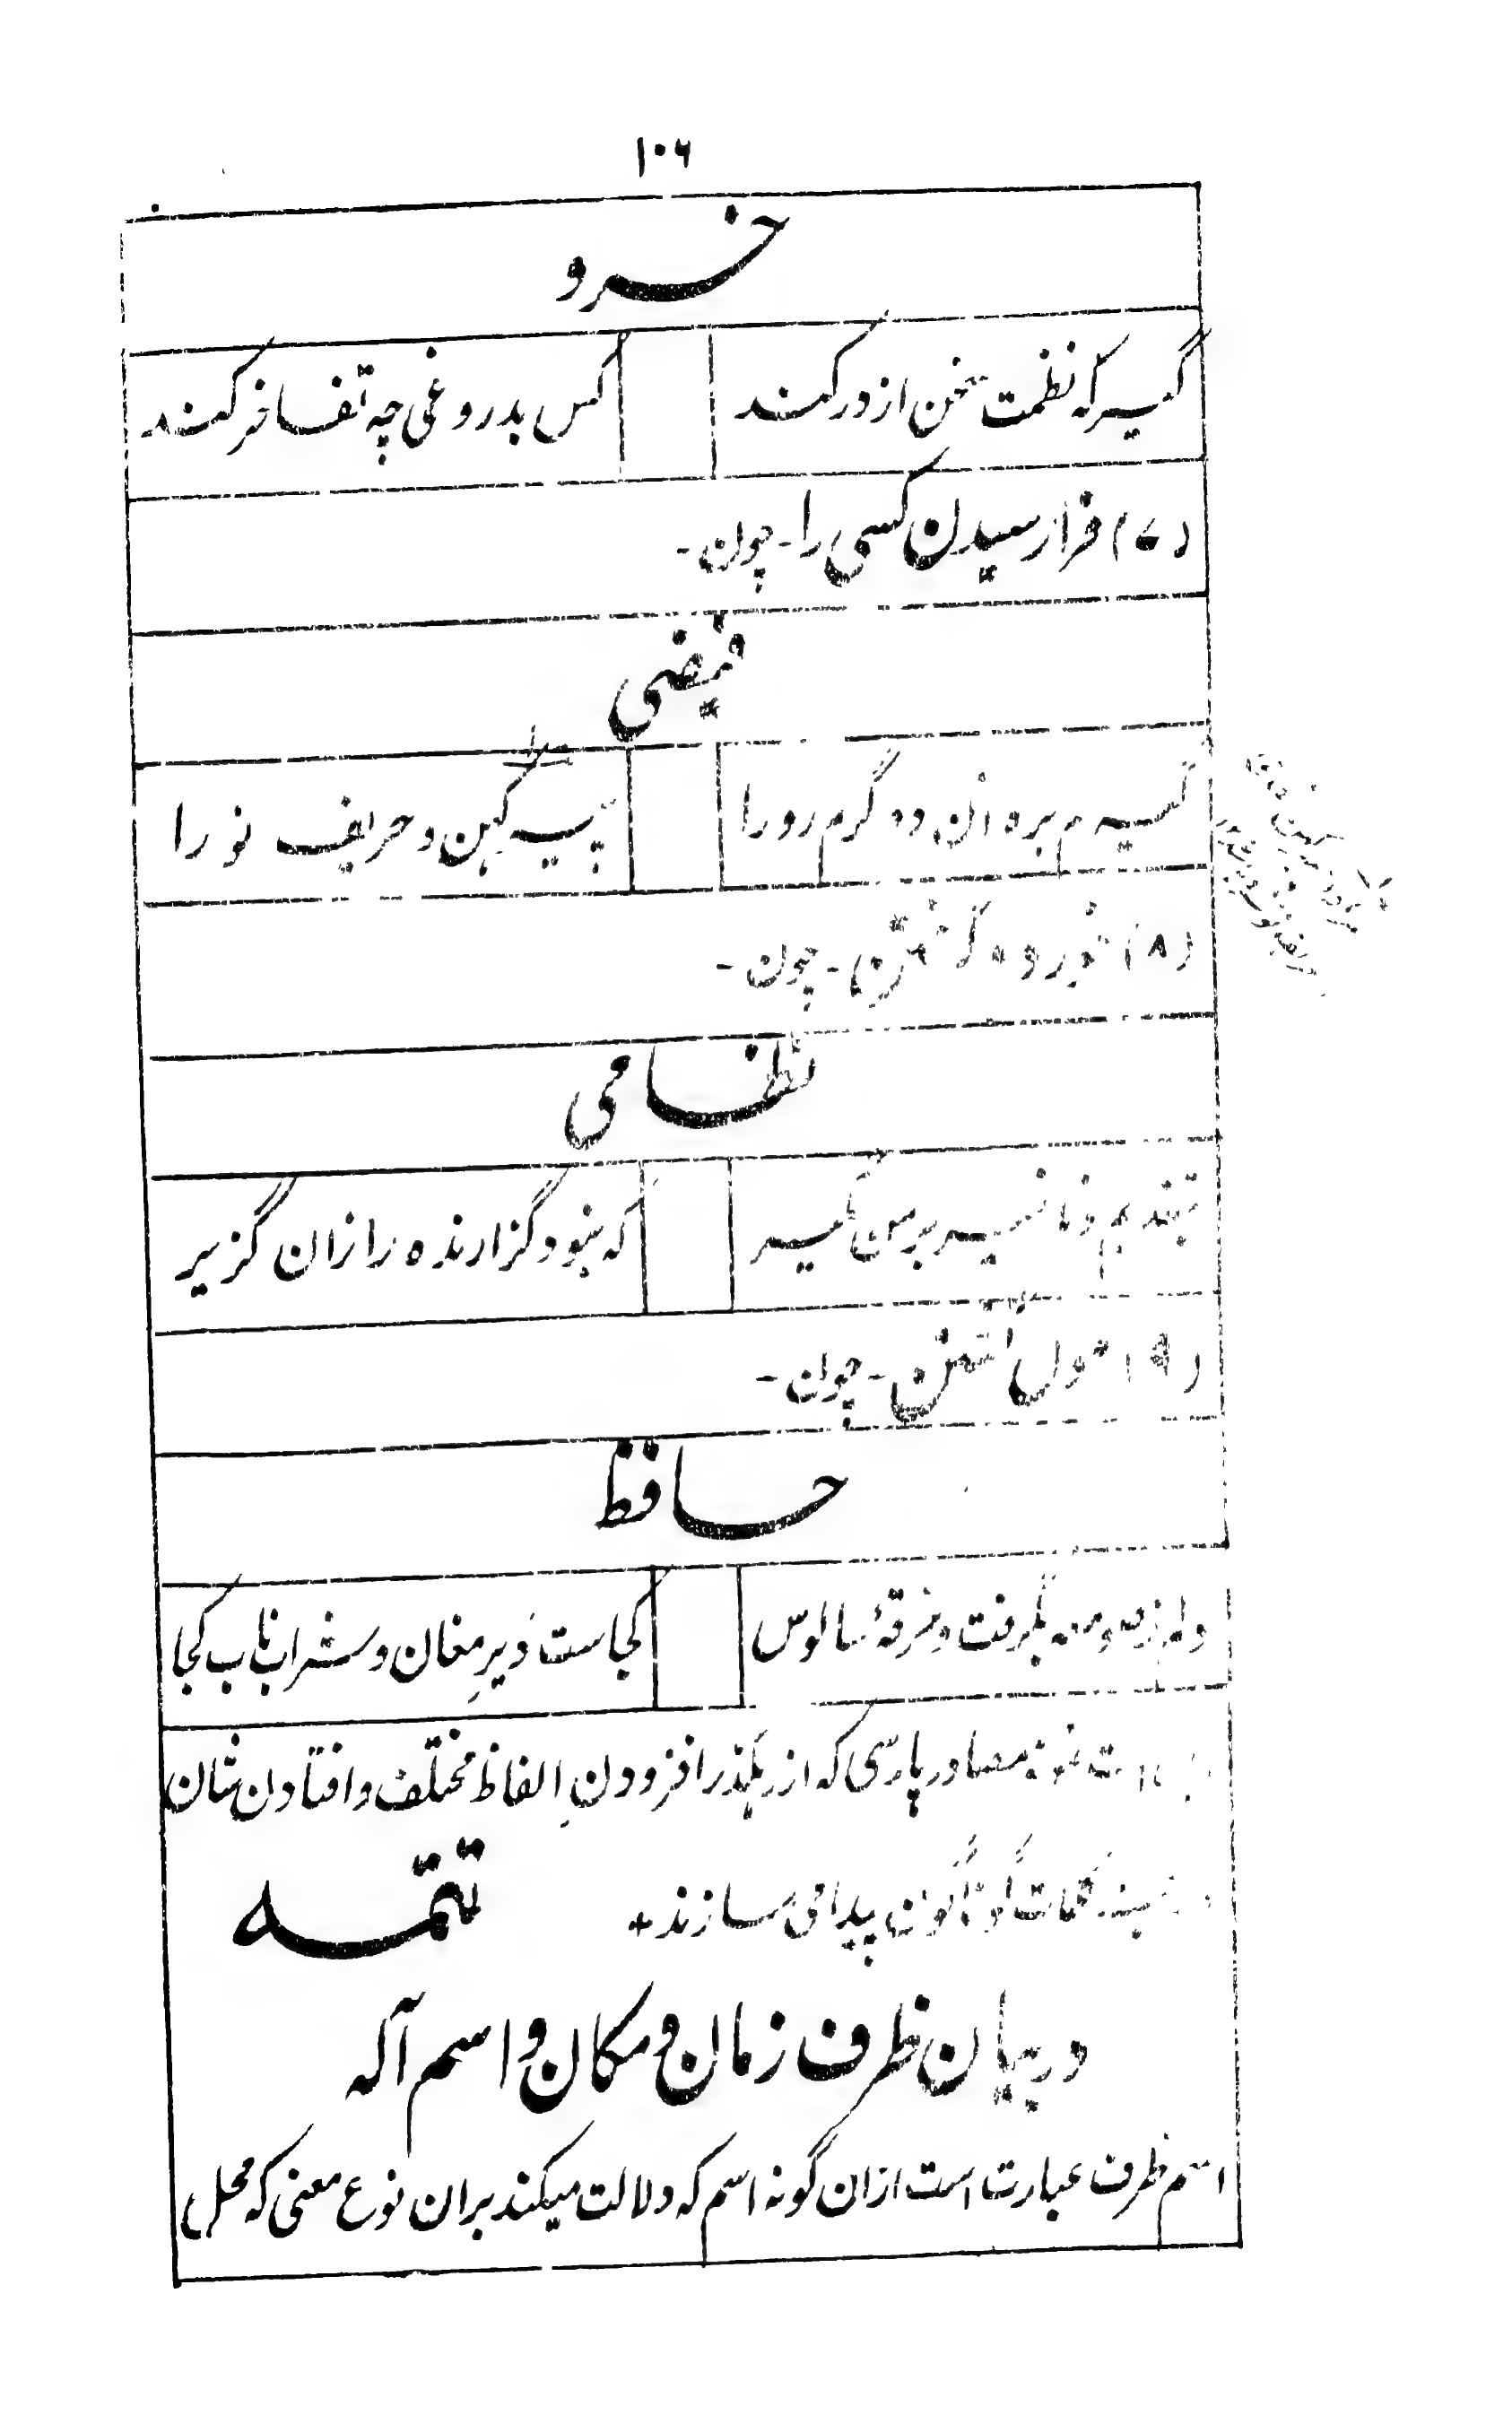 ۱۰۶
خسرو
گیر که نظمت سخن از در کند
کس بدروغی چه تفاخر کند
(۷) فرا رسیدن کسی را۔ چون۔
فیضی
گیرم بره آن دو گرم رو را
پیر کهن و حریف نو را
(۸) خورده گرفتن۔ چون۔
نظامی
بر من مگیر
که نبود گزارنده را زان گزیر
(۹) ملول گشتن۔ چون۔
حافظ
دلم ز صومعه بگرفت و خرقهٔ سالوس
کجاست دیرِ مغان و شراب ناب کجا
مصادر پارسی که از رهگذر افزودنِ الفاظ مختلف و افتادن شان
کلمات گوناگون پیدا می سازند ٭
تتمه
در بیان ظرف زمان و مکان و اسم آله
اسم ظرف عبارت است ازان گونه اسم که دلالت میکند بران نوع معنی که محل